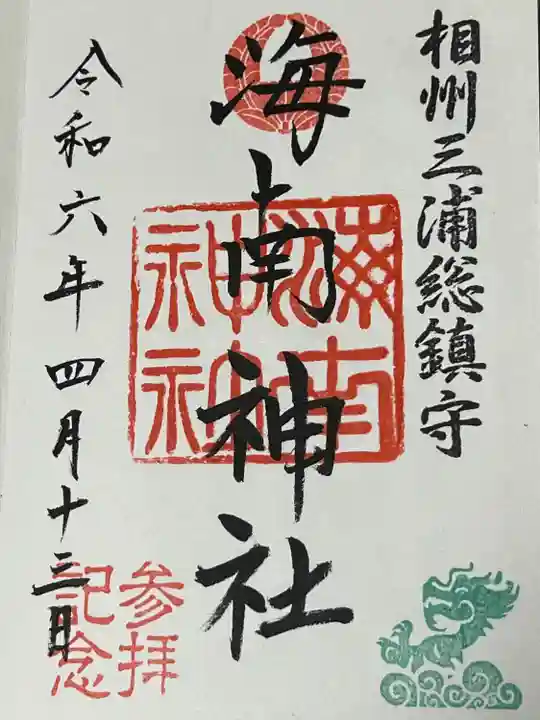 相州三浦総鎮守
海南神社
海南
神社
令和六年四月十三日
参拝
記念